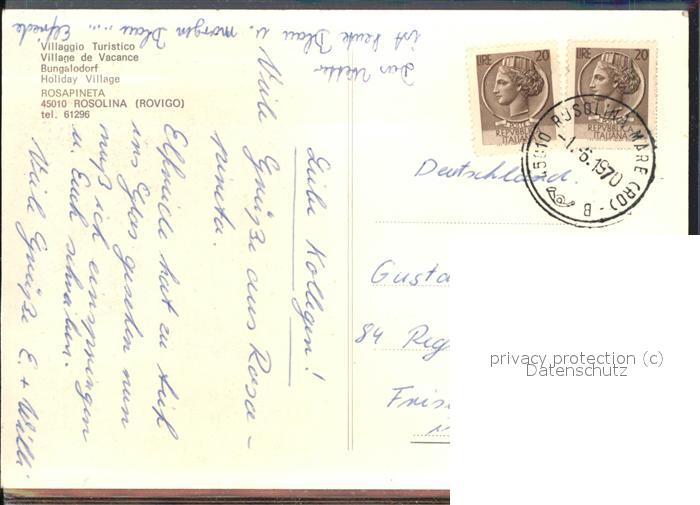 Villaggio Turistico
Village de Vacance
Bungalodorf
Holiday Village
ROSAPINETA
45010 ROSOLINA (ROVIGO)
tel. 61296
Liebe Kollegen!
Viele Grüße aus Rosa-
pineta.
Elfriede hat zu tief
ins Glas gesehen nun
muß ich einspringen
u. Euch schreiben.
Viele Grüße E. + Willi
Das Wetter
ist heute Blau u. morgen Blau .... Elfriede
LIRE 20
REPVBBLICA
ITALIANA
LIRE 20
REPVBBLICA
ITALIANA
45010 ROSOLINA MARE (RO) - B
-1.-6.1970
Deutschland.
Gusta
84 Reg
Fris
privacy protection (c)
Datenschutz